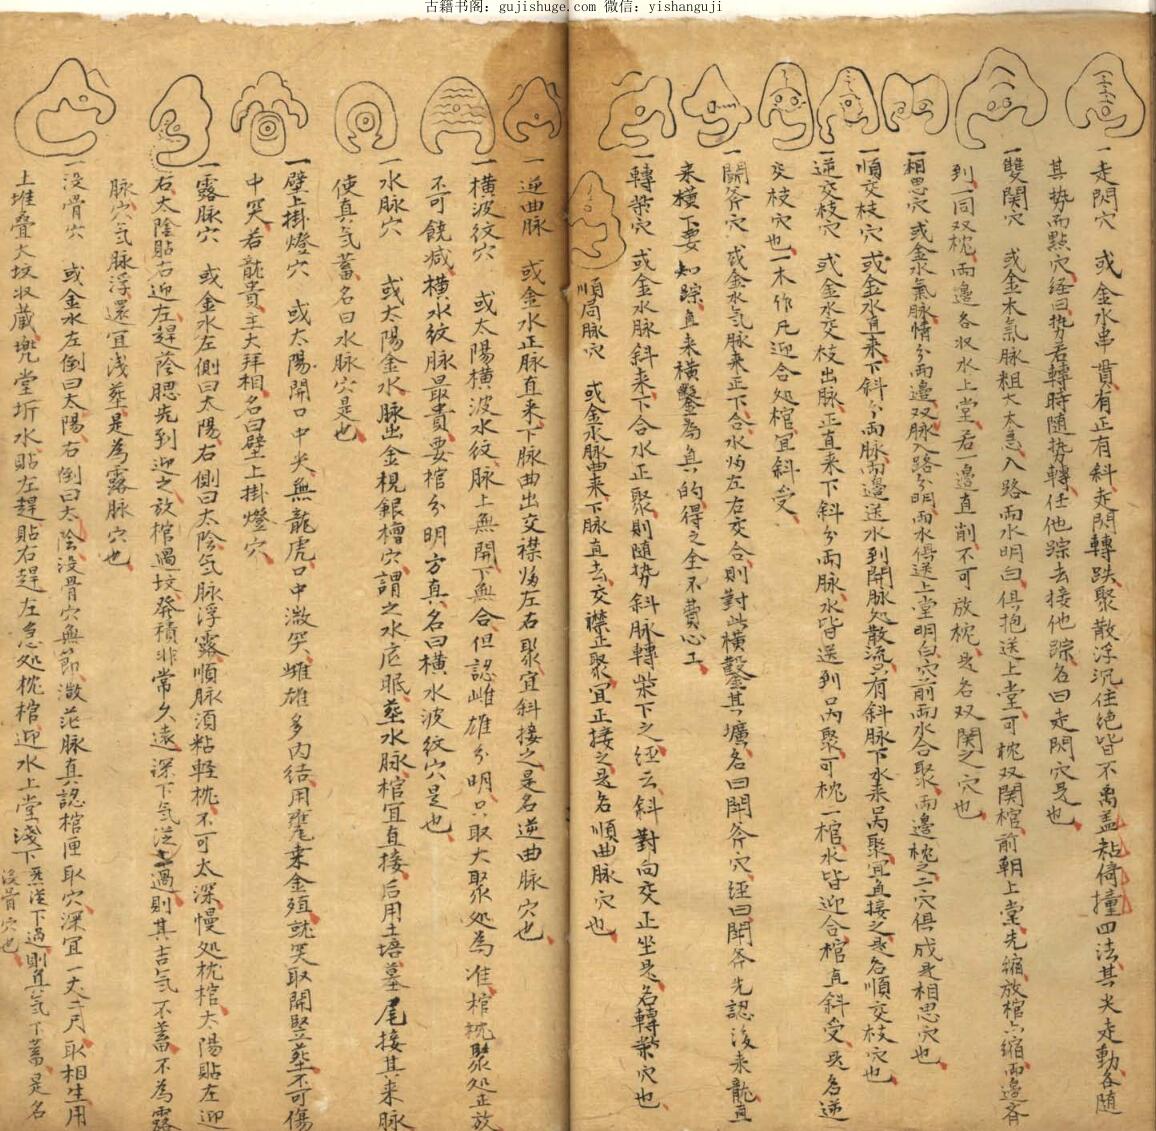 古籍书阁：gujishuge.com 微信：yishanguji
一走閃穴　或金水串貫有正有斜走閃轉跌聚散浮沉住絶皆不离盖粘倚撞四法其尖走動各随
其势而點穴経曰势若轉時随势轉任他踪去接他踪名曰走閃穴是也
一雙関穴　或金木氣脉粗大太急入路而水明白俱抱送上堂可枕双関棺前朝上堂先縮放棺六縮両邊齐
到一同双枕両邊各收水上堂若一邊直削不可放枕是名双関之穴也
一相思穴　或金水氣脉情分両邊双脉入路分明両水俱送上堂明白穴前両水合聚両邊枕之二穴俱成是相思穴也
一順交枝穴　或金水直来下斜分両脉両邊送水到開脉処散流只有斜脉下水来呙聚宜直接之是名順交枝穴也
一逆交枝穴　或金水交枝出脉正直来下斜分両脉水皆送到呙聚可枕一棺水皆迎合棺直斜受是名逆
交枝穴也一木作凡迎合処棺宜斜受
一開斧穴　或金水气脉来正下合水為左右交合則對此横鑿其壙名曰開斧穴経曰開斧先認後来龍直
来横下要知踪直来横鑿為真的得之全不費心工
一轉柴穴　或金水脉斜来下合水正聚則随势斜脉轉柴下之経云斜對向交正坐是名轉柴穴也
一順局脉穴　或金水脉曲来下脉直去交襟正聚宜正接之是名順曲脉穴也
一逆曲脉　或金水正脉直来下脉曲出交襟為左右聚宜斜接之是名逆曲脉穴也
一横波紋穴　或太陽横波水紋脉上無開下無合但認雌雄分明只取大聚処為准棺枕聚処正放
不可饒减横水紋脉最貴要棺分明方真名曰横水波紋穴是也
一水脉穴　或太陽金水脉出金梘銀檜穴謂之水底眠塟水脉棺宜直接后用土培墓尾接其来脉
使真气蓄名曰水脉穴是也
一壁上掛燈穴　或太陽開口中尖無龍虎口中微突雌雄多内结用鼋来金殖就突取開竖塟不可傷
中突若龍貴主大拜相名曰壁上掛燈穴
一露脉穴　或金水左側曰太陽右側曰太陰気脉浮露順脉須粘軽枕不可太深慢処枕棺太陽貼左迎
右太陰貼右迎左趕蔭腮先到迎之放棺遇坟發積非常久遠深下気従上過則其吉气不蓄不為露
脉穴気脉浮還宜浅塟是為露脉穴也
一没骨穴　或金水左倒曰太陽右倒曰太陰没骨穴無節微茫脉真認棺匣取穴深宜一丈二尺取相生用
土堆叠大坟収蔵兠堂圻水貼左趕貼右趕左急処枕棺迎水上堂浅下
無従下過則真气下蓄是名
没骨穴也